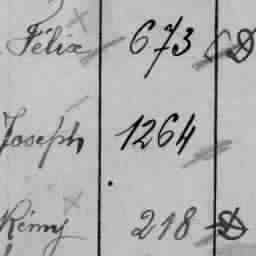 Félix 673 D
Joseph 1264
Rémy 218